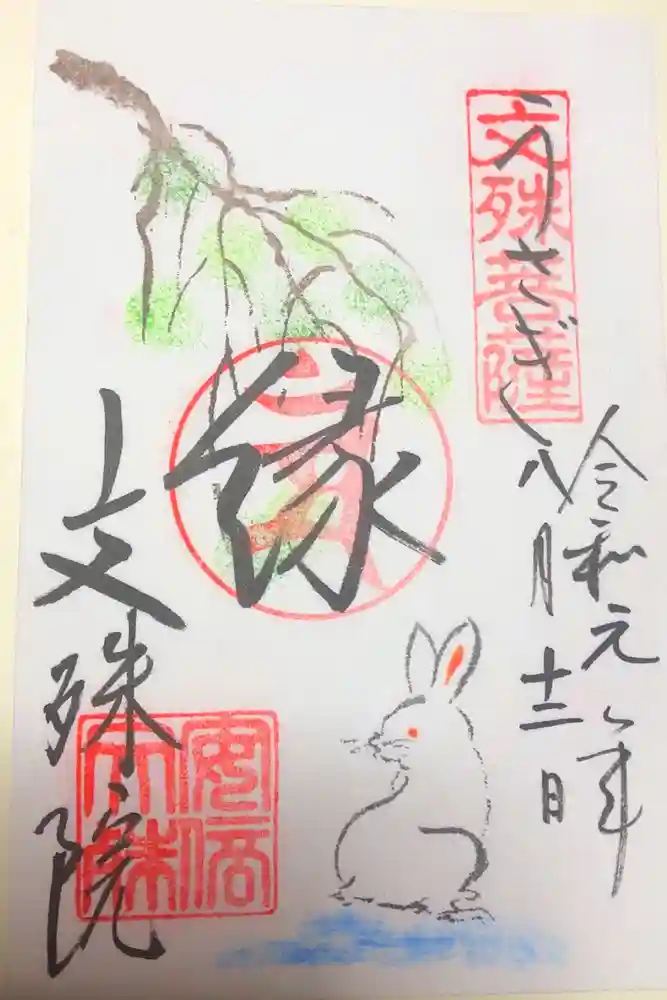 うさぎ
文殊菩薩
令和元年
八月十三日
縁
文殊院